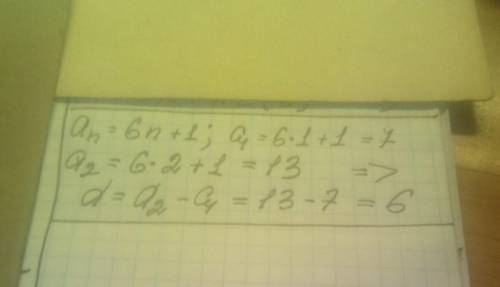 aₙ = 6n+1; a₁ = 6·1+1 = 7
a₂ = 6·2+1 = 13 =>
d = a₂ - a₁ = 13 - 7 = 6